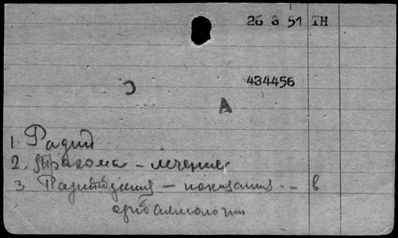 26 6 51 ТН
434456
С
А
1. Радий
2. Трахома - лечение
3. Радиотерапия - показания -- в
офтальмологии